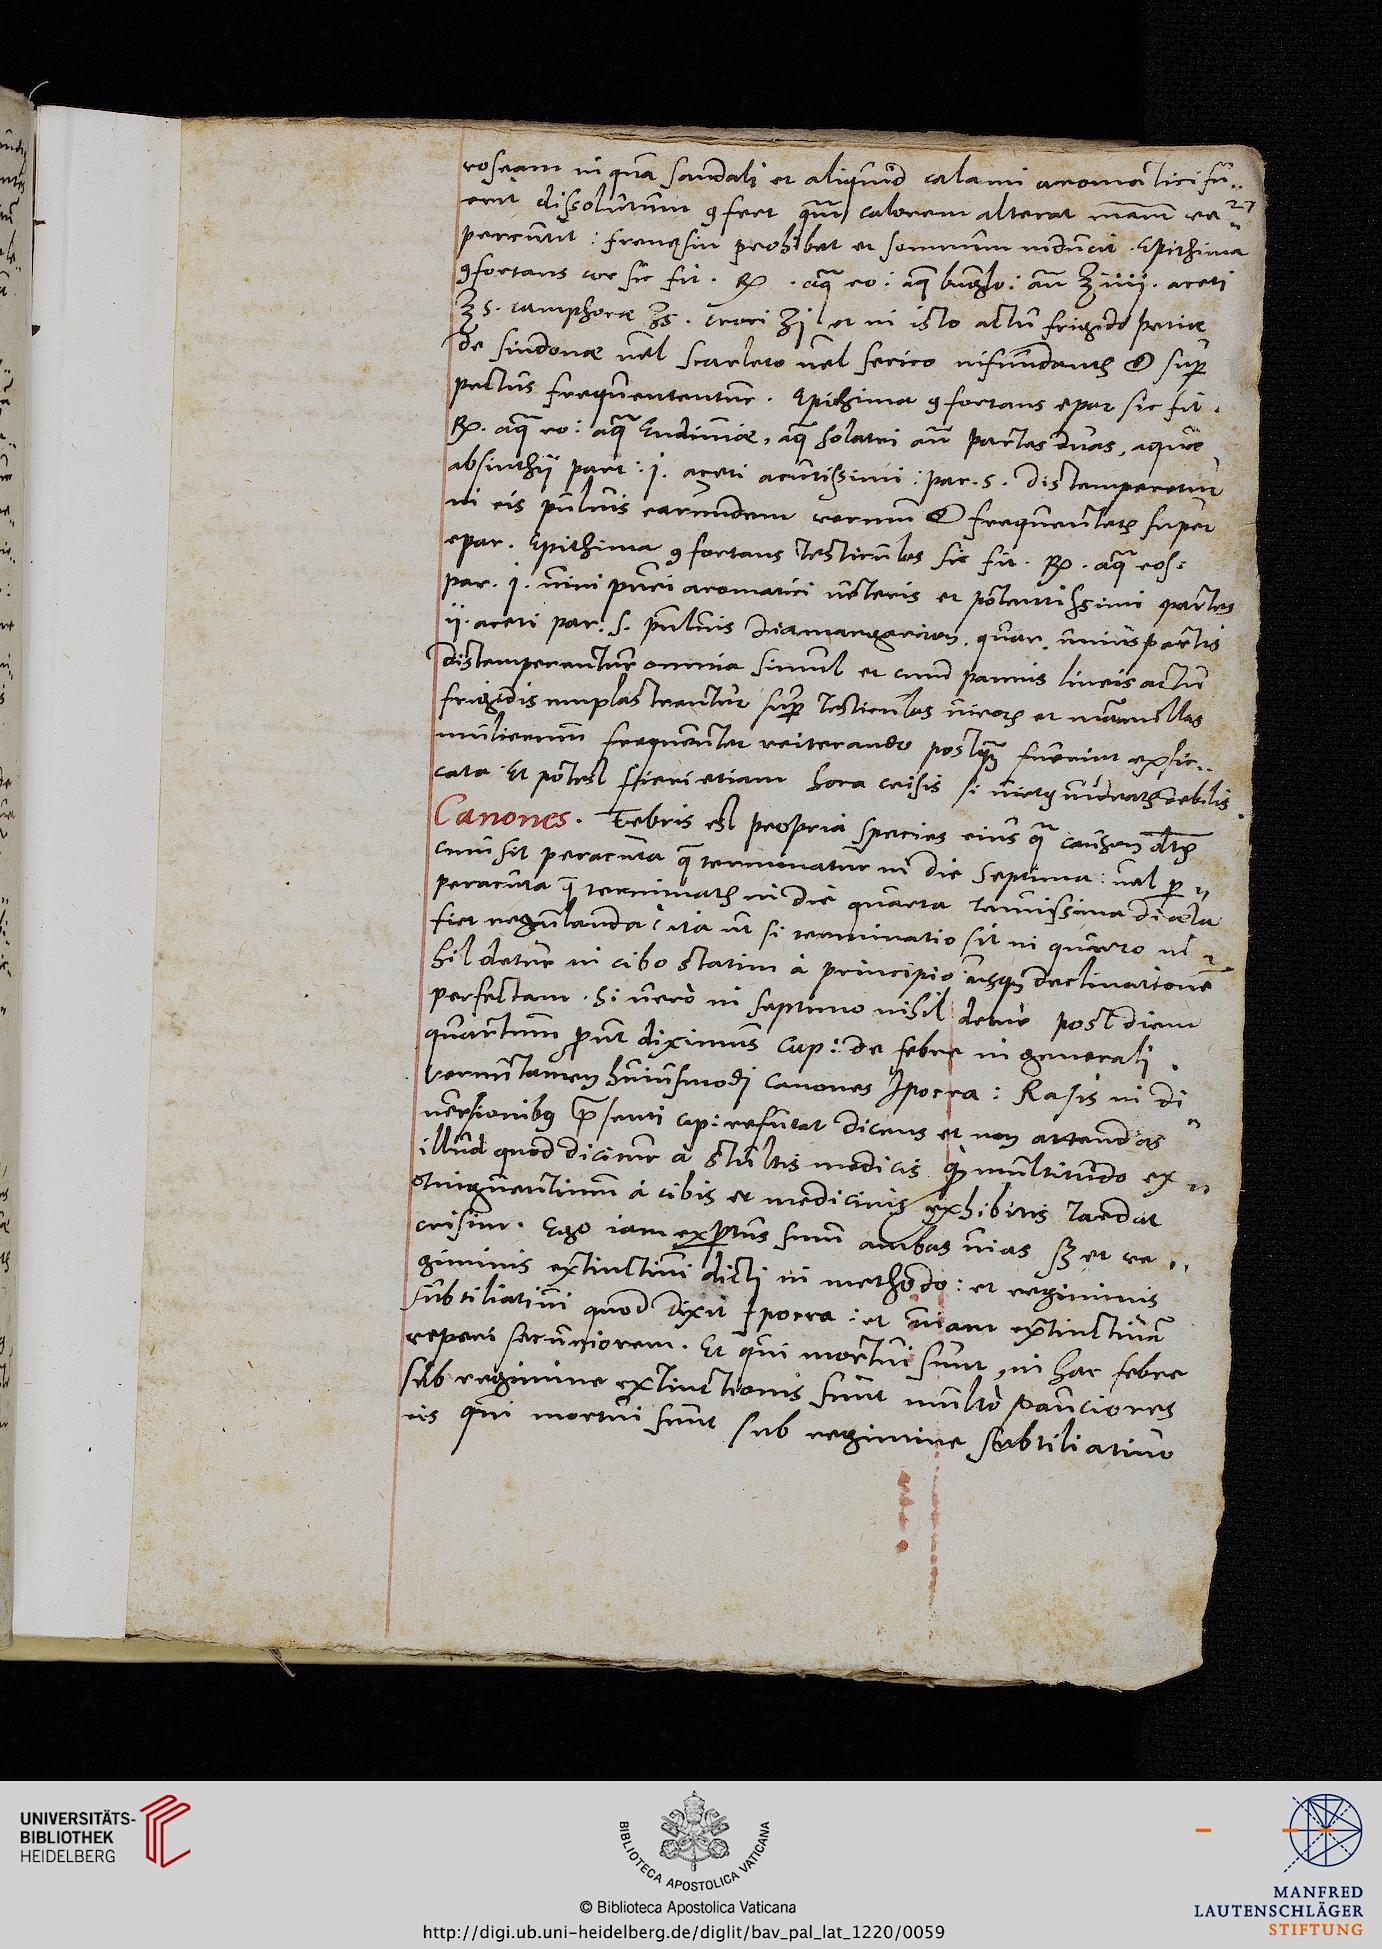 roseam in qua sandali et aliquid calami aromatici fu..
erit dissolutum 9fert quia calorem alterat mãm re
percutit : frenesin prohibet et somnum inducit . Epithima
9fortans cor sic fit . ℞ . aq̃ ro : aq̃ buglo : añ ℥ iiij . aceti
℥ s . camphoræ ʒs . croci ʒj et in isto actu frigido petiæ
de sindone uel scarleto uel serico infundantr̃ & sup̱
pectus frequententur . Epithima 9fortans epar sic fit .
℞ . aq̃ ro : aq̃ Endiuiæ , aq̃ solatri añ partes duas , aquæ
absinthij part : j . aceti acutissimi : par . s . Distemperetur
in eis puluis earundem rerum & frequentetr̃ super
epar . Epithima 9fortans testiculos sic fit . ℞ . aq̃ ros :
par . j . uini puri aromatici ueteris et potentissimi partes
ij . aceti par . s . puluis diamargariton . quar . unius partis
distemperentur omnia simul et cum pannis lineis actu
frigidis emplastrentur sup̱ testiculos uirorũ et mamillas
mulierum frequenter reiterando postq̃ fuerint exsic..
cata . Et potest fieri etiam hora crisis si uirtus uideatr̃ debilis .
Canones . Febris est propria species eius q̃ causon dr̃
cum sit peracuta q̃ terminatur in die septima : uel per
peracuta q̃ terminatr̃ in die quarta tenuissima diæta
fiet regulanda ita ut si terminatio sit in quarto ni
hil detur in cibo statim à principio usq̃ declinationẽ
perfectam . Si uero in septimo nihil detur post diem
quartum prout diximus cap : de febre in generali .
Veruntamen huiusmodi canones Ipocra : Rasis in di
uersionibus p̃senti cap : refutat dicens et non attendas
illud quod dicitur à stultis medicis q̃ multitudo ex
tinguentium à cibis et medicinis exhibitis tardat
crisim . Ego iam expertus sum ambas uias sʒ et re ..
giminis extinctiui dicti in methodo : et regiminis
subtiliatiui quod dixit Ipocra : et uiam extinctiuã
reperi securiorem . Et qui mortui sunt in hac febre
sub regimine extinctionis sunt multo pauciores
iis qui mortui sunt sub regimine subtiliatiuo
UNIVERSITÄTS-
BIBLIOTHEK
HEIDELBERG
BIBLIOTECA APOSTOLICA VATICANA
© Biblioteca Apostolica Vaticana
http://digi.ub.uni-heidelberg.de/diglit/bav_pal_lat_1220/0059
MANFRED
LAUTENSCHLÄGER
STIFTUNG